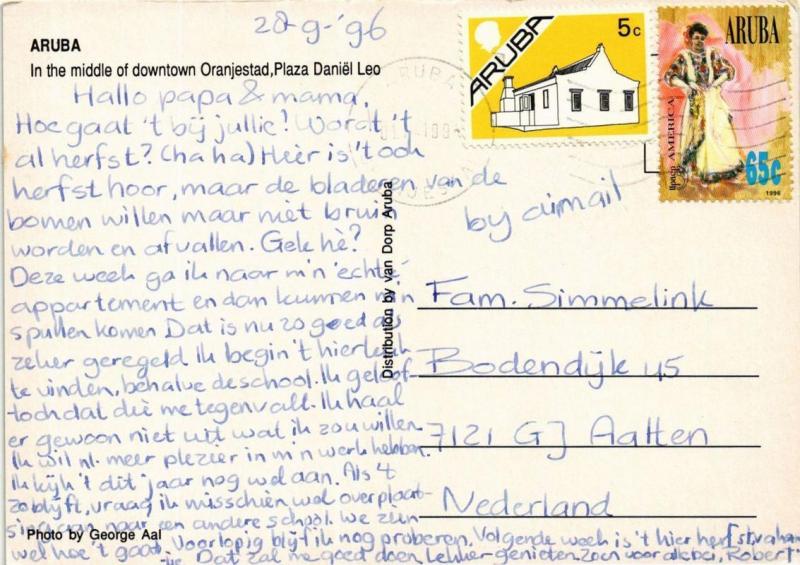 28-9-'96
ARUBA
In the middle of downtown Oranjestad,Plaza Daniël Leo
Hallo papa & mama,
Hoe gaat 't bij jullie? Wordt 't
al herfst? (ha ha) Hier is 't ook
herfst hoor, maar de bladeren van de
bomen willen maar niet bruin
worden en afvallen. Gek hè?
Deze week ga ik naar m'n 'echte'
appartement en dan kunnen m'n
spullen komen Dat is nu zo goed als
zeker geregeld Ik begin 't hier leuk
te vinden, behalve de school. Ik geloof
toch dat die me tegenvalt. Ik haal
er gewoon niet uit wat ik zou willen.
Ik wil nl. meer plezier in m'n werk hebben.
Ik kijk 't dit jaar nog wel aan. Als 't
zo blijft, vraag ik misschien wel overplaat-
sing aan naar een andere school. We zien
wel hoe 't gaat. Voorlopig blijf ik nog proberen. Volgende week is 't hier herfstvakan-
tie. Dat zal me goed doen. Lekker genieten. Zoen voor allebei, Robert
Photo by George Aal
Distribution by van Dorp Aruba
ARUBA
5c
ARUBA
Upaep AMERICA
65c
1996
by airmail
Fam. Simmelink
Bodendijk 45
7121 GJ Aalten
Nederland